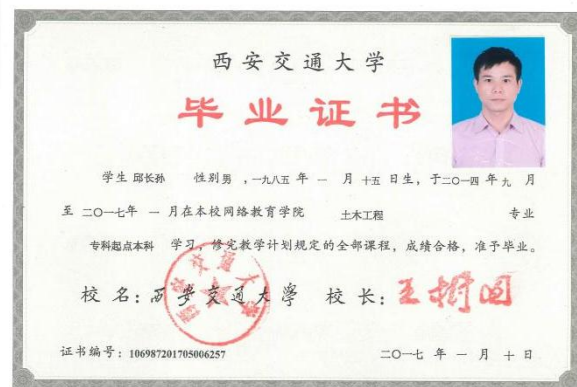 西安交通大学
毕业证书
学生 邱长孙 性别 男 ,一九八五 年 一 月 十五 日生，于二〇一四 年 九 月
至 二〇一七年 一 月在本校网络教育学院 土木工程 专业
专科起点本科 学习，修完教学计划规定的全部课程，成绩合格，准予毕业。
校 名：西安交通大学 校 长：王树国
证书编号：106987201705006257 二〇一七 年 一 月 十 日